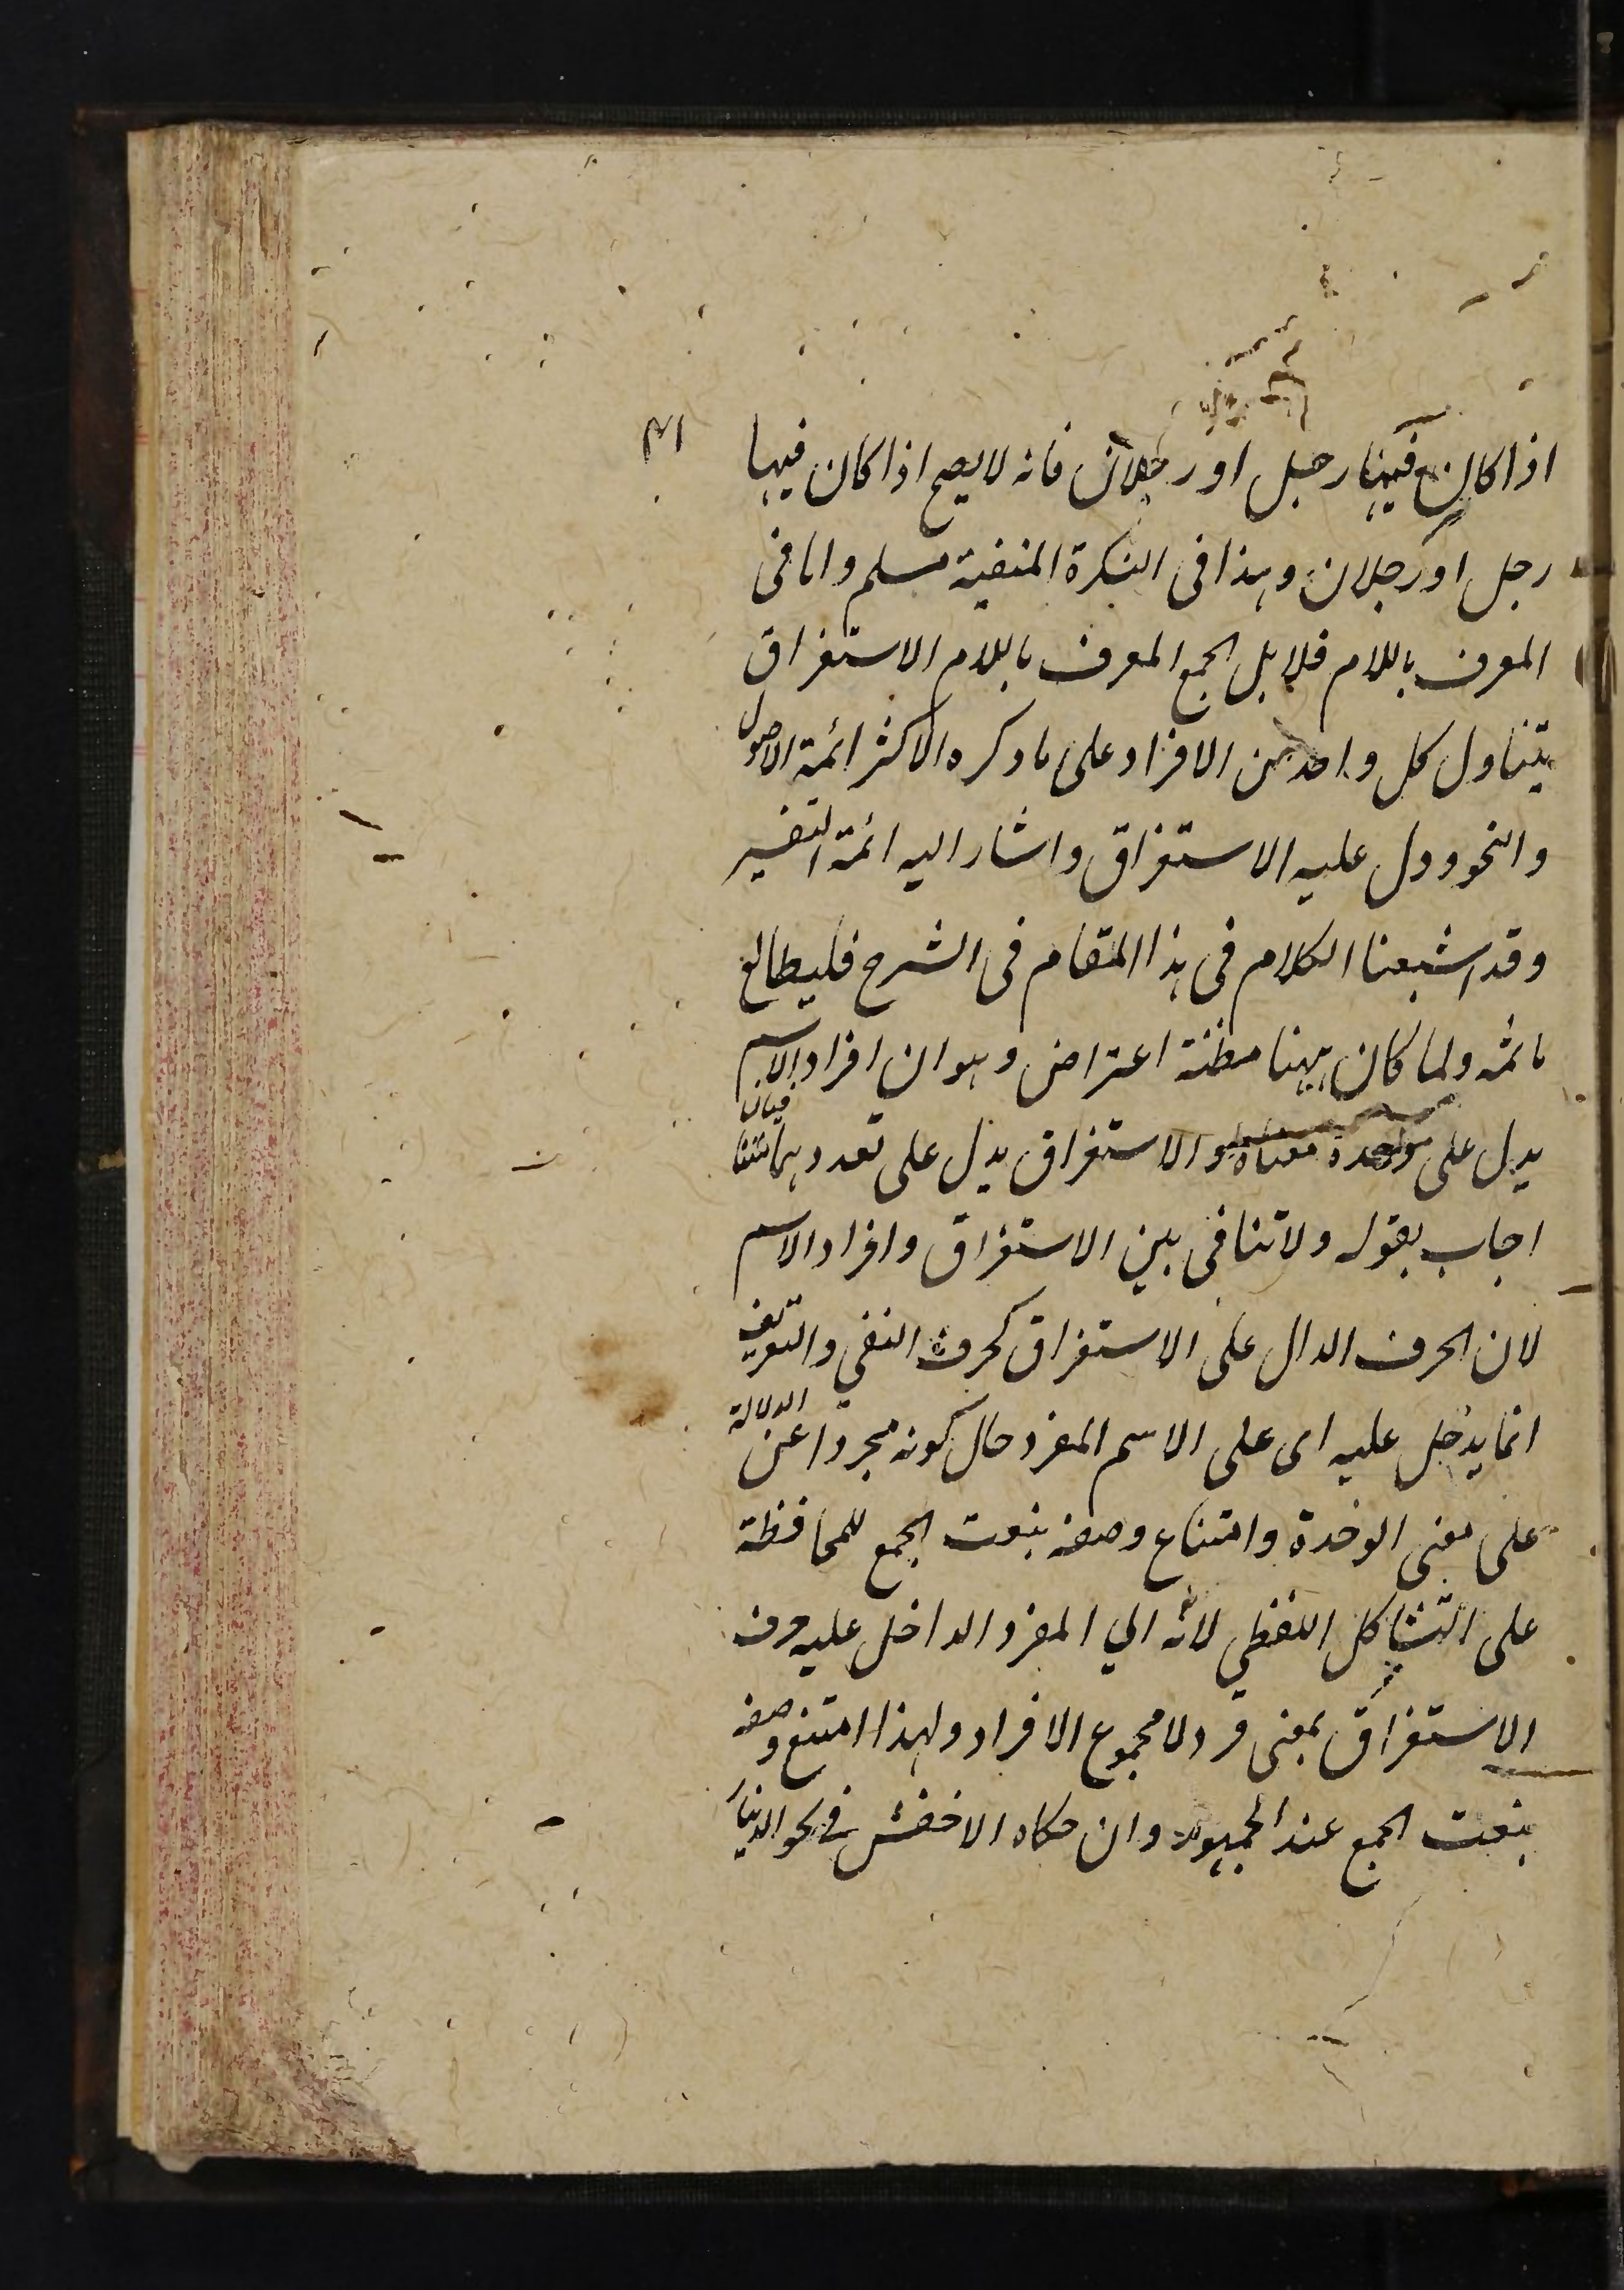 اذا كان فيها رجل او رجلان فانه لا يصح اذا كان فيها
رجل او رجلان وهذا فى النكرة المنفية مسلم واما فى
المعرف باللام فلا بل الجمع المعرف باللام الاستغراق
يتناول كل واحد من الافراد على ما ذكره الاكثر ائمة الاصول
والنحو ودل عليه الاستغراق واشار اليه ائمة التفسير
وقد اشبعنا الكلام فى هذا المقام فى الشرح فليطالع
ما ثمه ولما كان ههنا مظنة اعتراض وهو ان افراد الاسم
يدل على وحدة معناه والاستغراق يدل على تعدد هما متنافيان
اجاب بقوله ولا تنافى بين الاستغراق وافراد الاسم
لان الحرف الدال على الاستغراق كحرف النفي والتعريف
انما يدخل عليه اى على الاسم المفرد حال كونه مجردا عن الدلالة
على معنى الوحدة وامتناع وصفه بنعت الجمع للمحافظة
على التشاكل اللفظي لانه اي المفرد الداخل عليه حرف
الاستغراق بمعنى فرد لا مجموع الافراد ولهذا امتنع وصفه
بنعت الجمع عند الجمهور وان حكاه الاخفش في نحو الدينار